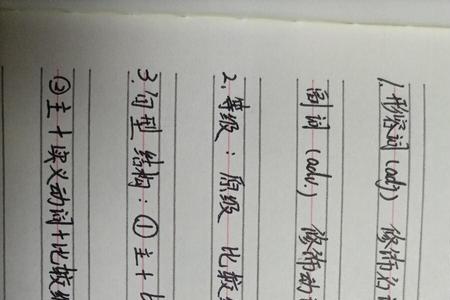 1.形容词(adj) 修饰名词
副词(adv.) 修饰动
2.等级：原级 比较
3.句型结构：①主+比
②主+实义动词+比较